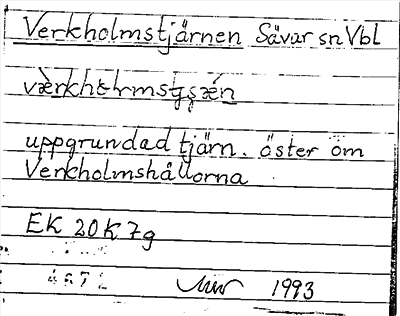 Verkholmstjärnen Sävar sn Vbl
uppgrundad tjärn. öster om
Verkholmshällorna
EK 20K 7g
1993